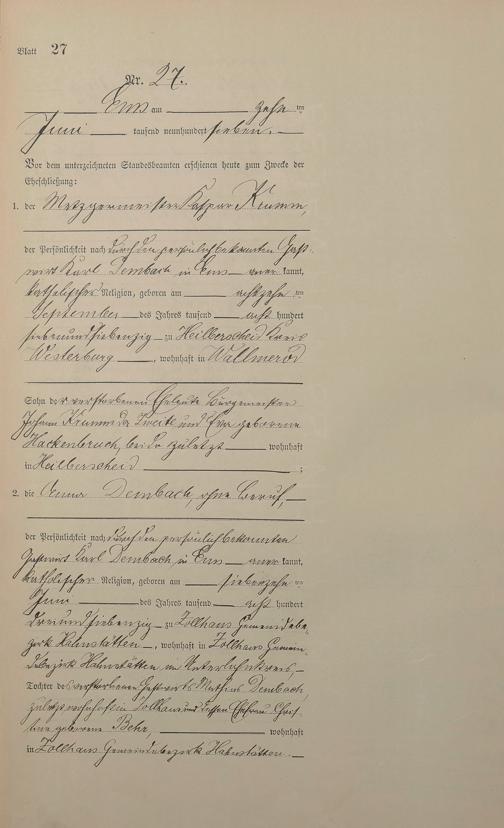 Blatt 27
Nr. 27.
Ems am zehnten
Juni tausend neunhundert sieben.
Vor dem unterzeichneten Standesbeamten erschienen heute zum Zwecke der
Eheschließung:
1. der Metzgermeister Kaspar Krumm,
der Persönlichkeit nach durch den persönlich bekannten Gast-
wirt Karl Dembach in Ems anerkannt,
katholischer Religion, geboren am achtzehnten
September des Jahres tausend acht hundert
siebenundsiebenzig zu Heilberscheid Kreis
Westerburg, wohnhaft in Wallmerod
Sohn der verstorbenen Eheleute Bürgermeister
Johann Krumm der Zweite und Eva geborene
Hackenbruch, beide zuletzt wohnhaft
in Heilberscheid ;
2. die Anna Dembach, ohne Beruf,
der Persönlichkeit nach durch den persönlich bekannten
Gastwirt Karl Dembach in Ems anerkannt,
katholischer Religion, geboren am siebzehnten
Juni des Jahres tausend acht hundert
dreiundsiebenzig zu Zollhaus Gemeindebe-
zirk Hahnstätten, wohnhaft in Zollhaus Gemein-
debezirk Hahnstätten im Unterlahnkreis
Tochter des verstorbenen Gastwirts Mathias Dembach,
zuletzt wohnhaft in Zollhaus und dessen Ehefrau Chris-
tine geborene Behr, wohnhaft
in Zollhaus Gemeindebezirk Hahnstätten.